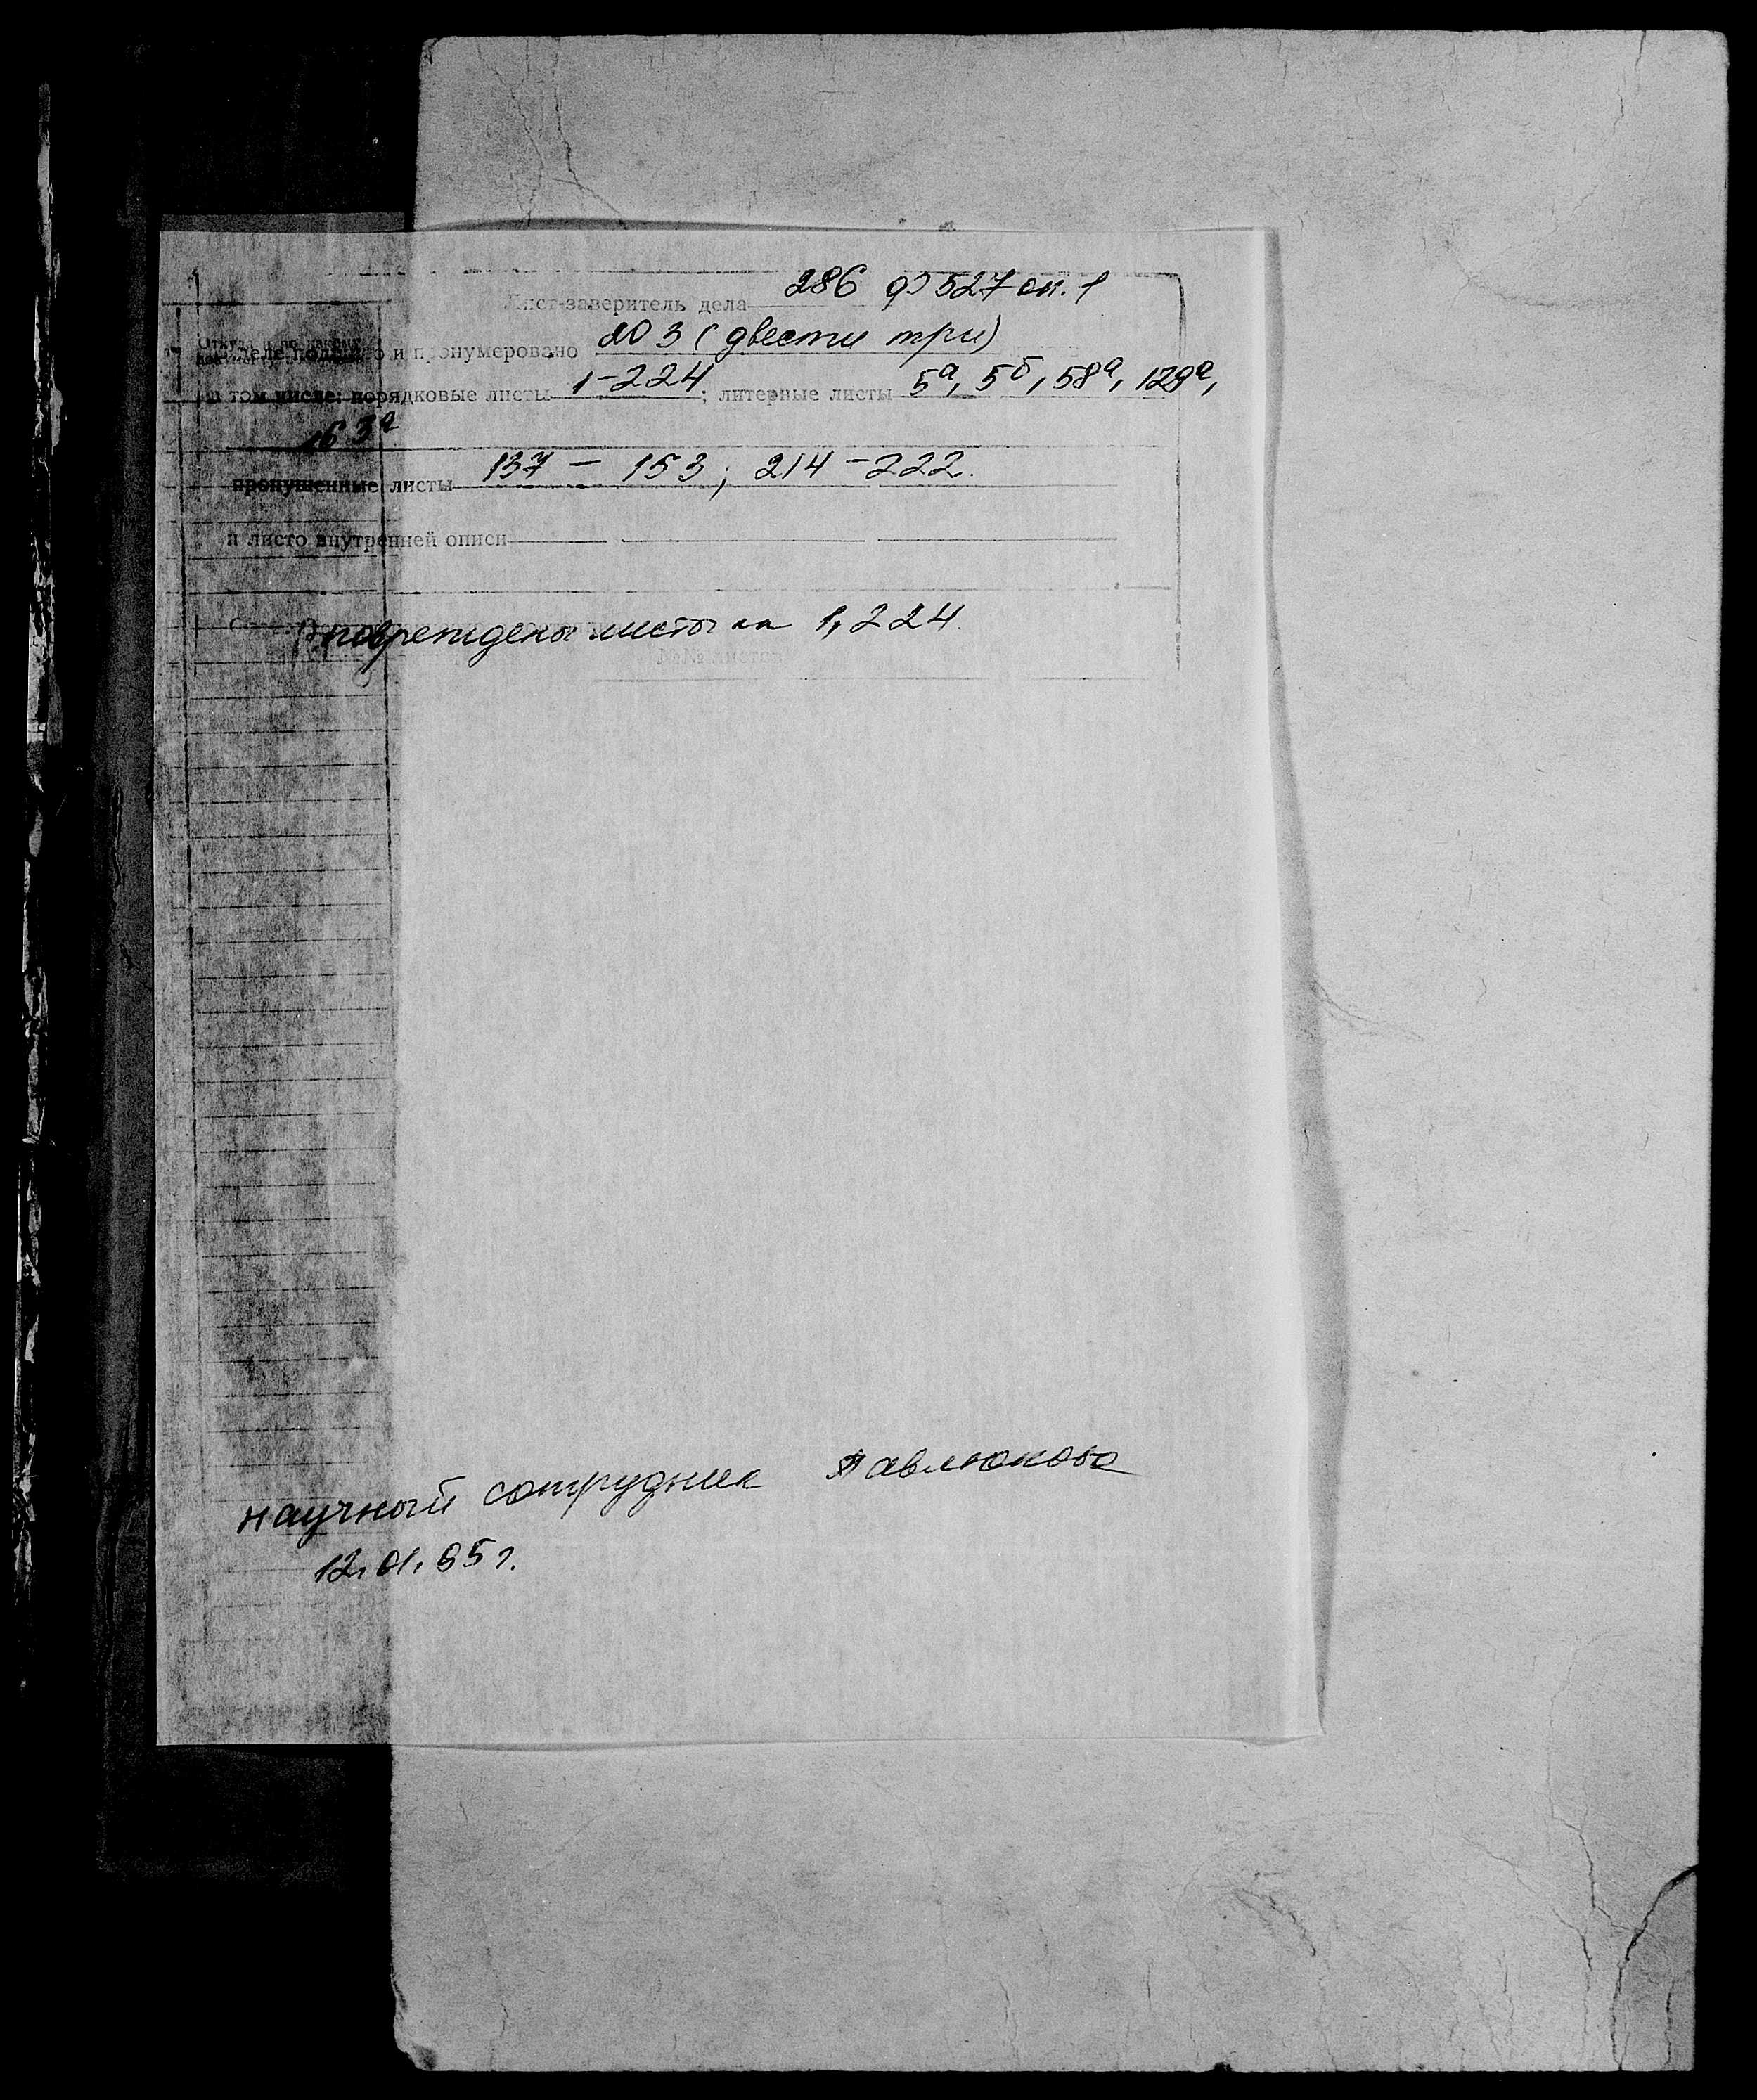 Лист-заверитель дела 286 ф 527 оп. 1
деле подшито и пронумеровано 203 (двести три)
в том числе: порядковые листы 1-224; литерные листы 5а, 5б, 58а, 129а,
163а
пропущенные листы 137 - 153; 214-222.
и листо внутренней описи
Повреждены листы 1, 224
№№ листов
научный сотрудник Павлюкова
12.01.95г.